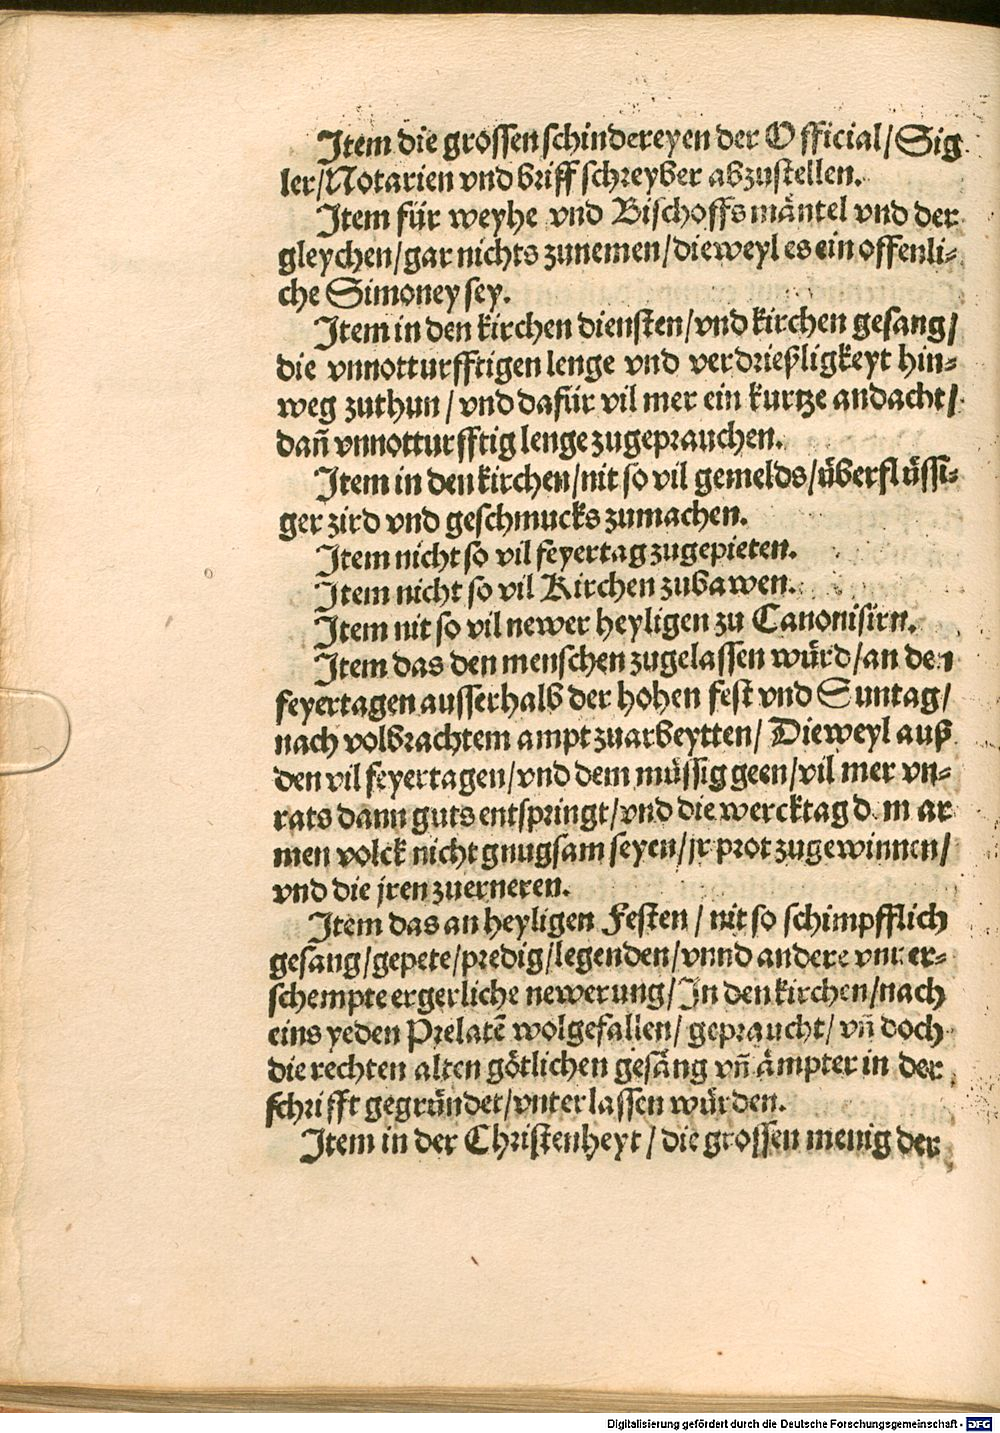 Item die grossen schindereyen der Official/Sig
ler/Notarien vnd briff schreyber abzustellen.
Item für weyhe vnd Bischoffs mäntel vnd der
gleychen/gar nichts zunemen/dieweyl es ein offenli-
che Simoney sey.
Item in den kirchen diensten/vnd kirchen gesang/
die vnnotturfftigen lenge vnd verdrießligkeyt hin-
weg zuthun/vnd dafür vil mer ein kurtze andacht/
dañ vnnotturfftig lenge zugeprauchen.
Item in den kirchen/nit so vil gemelds/überflüssi-
ger zird vnd geschmucks zumachen.
Item nicht so vil feyertag zugepieten.
Item nicht so vil Kirchen zubawen.
Item nit so vil newer heyligen zu Canonisirn.
Item das den menschen zugelassen würd/an den
feyertagen ausserhalb der hohen fest vnd Suntag/
nach volbrachtem ampt zuarbeytten/Dieweyl auß
den vil feyertagen/vnd dem müssig geen/vil mer vn-
rats dann guts entspringt/vnd die wercktag dem ar
men volck nicht gnugsam seyen/jr prot zugewinnen/
vnd die jren zuerneren.
Item das an heyligen Festen/nit so schimpfflich
gesang/gepete/predig/legenden/vnnd andere vnuer-
schempte ergerliche newerung/In den kirchen/nach
eins yeden Prelatē wolgefallen/gepraucht/vñ doch
die rechten alten götlichen gesäng vñ ämpter in der
schrifft gegründet/vnterlassen würden.
Item in der Christenheyt/die grossen menig der
Digitalisierung gefördert durch die Deutsche Forschungsgemeinschaft - DFG